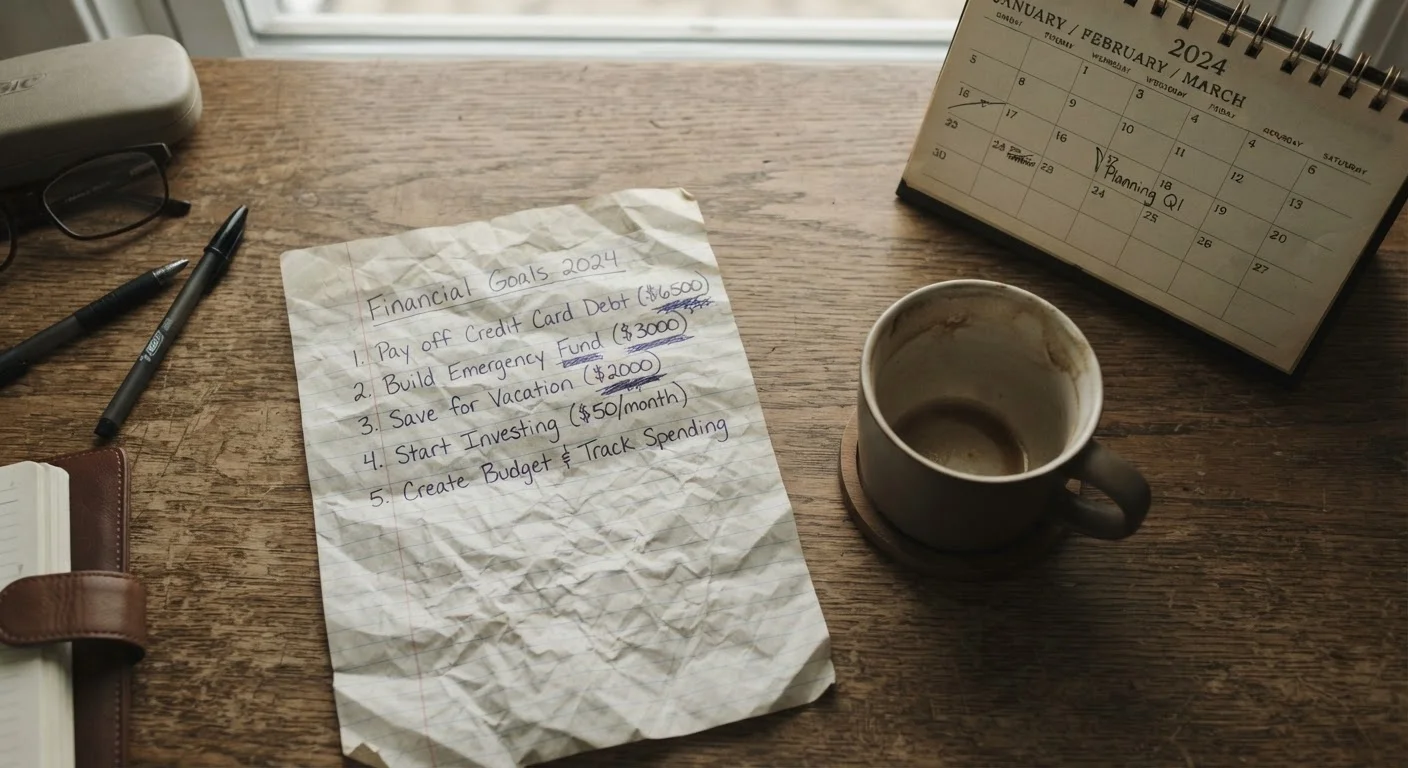 Financial Goals 2024
1. Pay off Credit Card Debt ($6500)
2. Build Emergency Fund ($3000)
3. Save for Vacation ($2000)
4. Start Investing ($50/month)
5. Create Budget & Track Spending
JANUARY / FEBRUARY / MARCH
2024
SATURDAY
5 8 1 3 4 4 6
16 17 9 10 11 12 13
16 17 18 19 20
30 23 24 25 26 27
Planning Q1